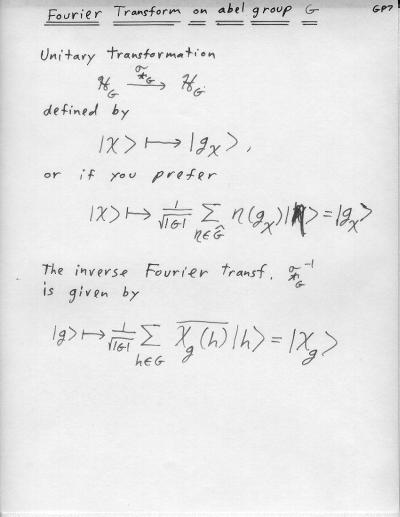 Fourier Transform on abel group G GP7
Unitary Transformation
ℋ_G —ℱ_G→ ℋ_G
defined by
|χ⟩ ⟼ |g_χ⟩,
or if you prefer
|χ⟩ ⟼ 1/√|G| Σ_{η∈Ĝ} η(g_χ)|η⟩ = |g_χ⟩
The inverse Fourier Transf. ℱ_G^{-1}
is given by
|g⟩ ⟼ 1/√|G| Σ_{h∈G} \overline{χ_g(h)}|h⟩ = |χ_g⟩